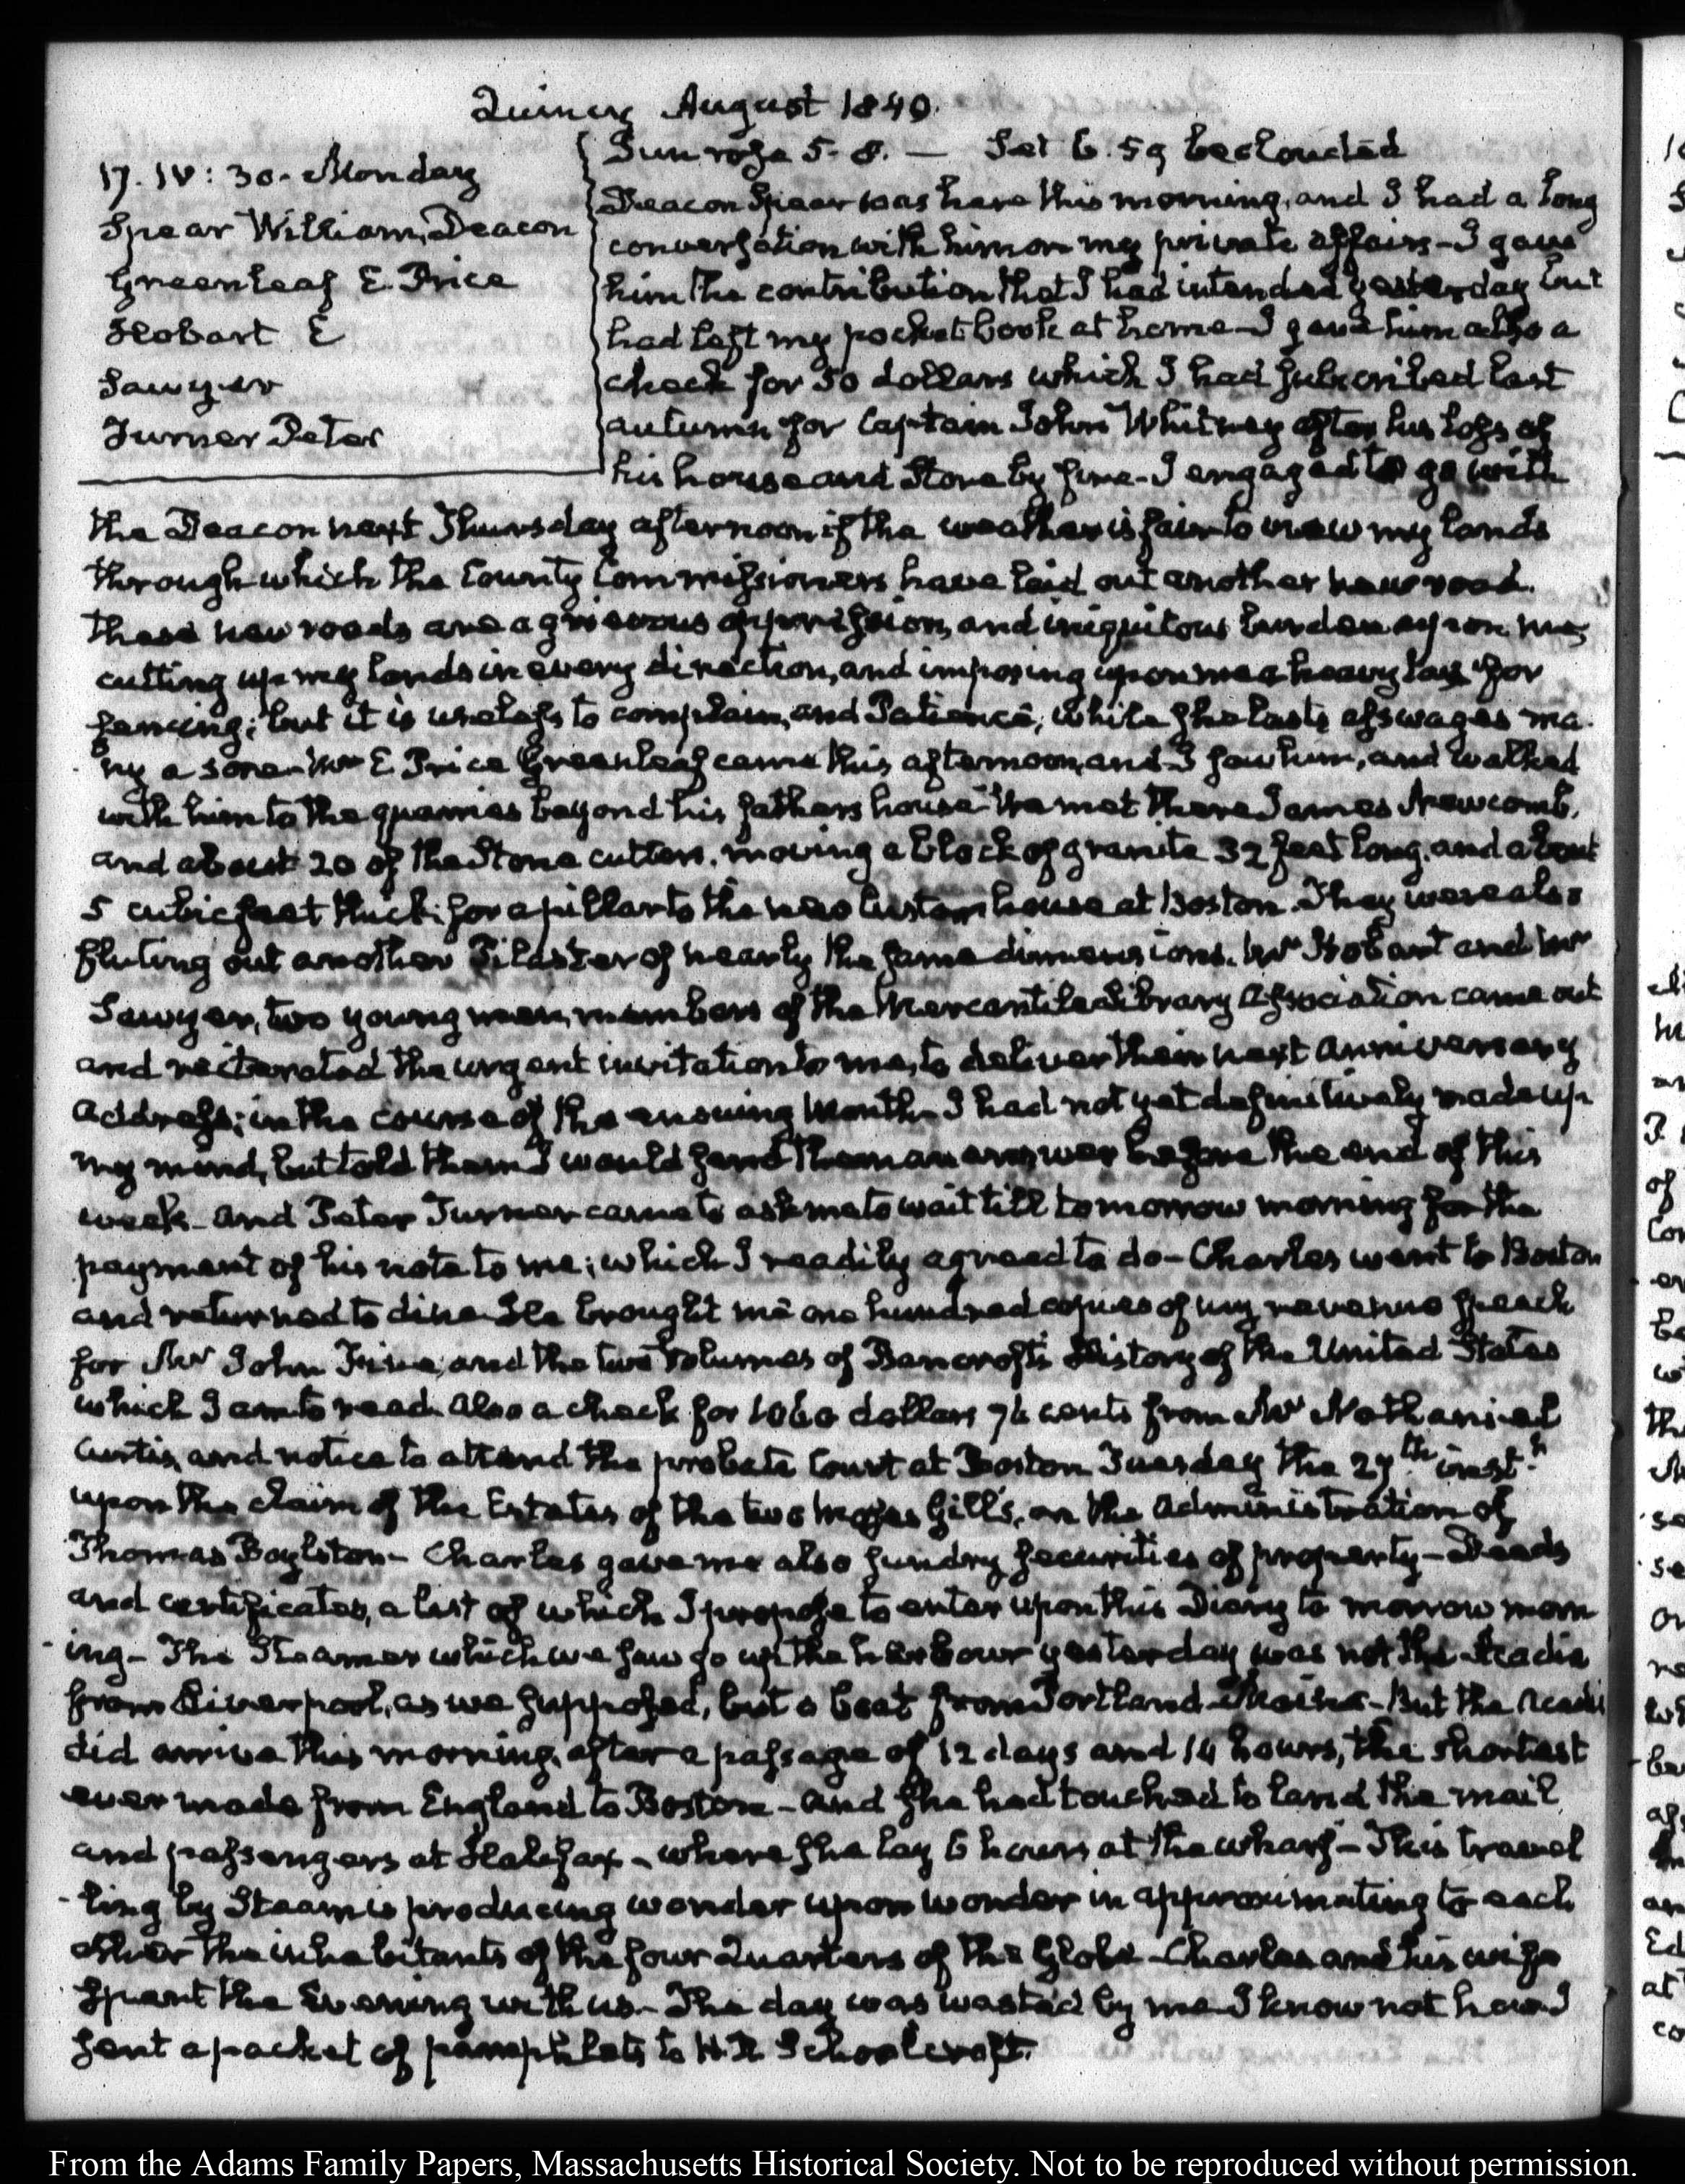 Quincy August 1840.
17. IV: 30. Monday
Spear William, Deacon
Greenleaf E. Price
Hobart E
Sawyer
Turner Peter
Sun rose 5. 8. — Set 6. 59 beclouded
Deacon Spear was here this morning, and I had a long
conversation with him on my private affairs - I gave
him the contribution that I had intended yesterday but
had left my pocket book at home - I gave him also a
check for 50 dollars which I had subscribed last
autumn for Captain John Whitney after his loss of
his house and Store by fire - I engaged to go with
the Deacon next Thursday afternoon if the weather is fair to view my lands
through which the County Commissioners have laid out another new road.
these new roads are a grievous oppression, and iniquitous burden upon me,
cutting up my lands in every direction, and imposing upon me a heavy tax for
fencing; but it is useless to complain, and Patience, while she lasts asswages ma-
ny a sore - Mr E. Price Greenleaf came this afternoon, and I saw him, and walked
with him to the quarries beyond his fathers house - We met there James Newcomb,
and about 20 of the Stone cutters. moving a block of granite 32 feet long, and about
5 cubic feet thick; for a pillar to the new Custom house at Boston. They were also
fluting out another Pilaster of nearly the same dimensions. Mr Hobart and Mr
Sawyer, two young men, members of the Mercantile Library Association came out
and reiterated the urgent invitation to me, to deliver their next Anniversary
address; in the course of the ensuing Month - I had not yet definitively made up
my mind, but told them I would send them an answer before the end of this
week - and Peter Turner came to ask me to wait till tomorrow morning for the
payment of his note to me; which I readily agreed to do - Charles went to Boston
and returned to dine. He brought me one hundred copies of my revenue speech
for Mr John and the two Volumes of Bancroft's History of the United States
which I am to read. Also a check for 1060 dollars 76 cents from Mr Nathaniel
Curtis, and notice to attend the probate Court at Boston Tuesday the 27th inst.
upon the claim of the Estates of the two Moses Gill's, on the administration of
Thomas Boylston - Charles gave me also sundry securities of property - Deeds
and certificates, a list of which I propose to enter upon this Diary to morrow morn
-ing - The Steamer which we saw go up the harbour yesterday was not the Acadia
from Liverpool, as we supposed, but a boat from Portland Maine - But the Acadia
did arrive this morning, after a passage of 12 days and 14 hours, the shortest
ever made from England to Boston - and she had touched to land the mail
and passengers at Halifax - where she lay 6 hours at the wharf - This travel
-ling by Steam is producing wonder upon wonder in approximating to each
other the inhabitants of the four Quarters of the Globe - Charles and his wife
spent the Evening with us - The day was wasted by me I know not how. I
sent a packet of pamphlets to H. R. Schoolcraft.
From the Adams Family Papers, Massachusetts Historical Society. Not to be reproduced without permission.